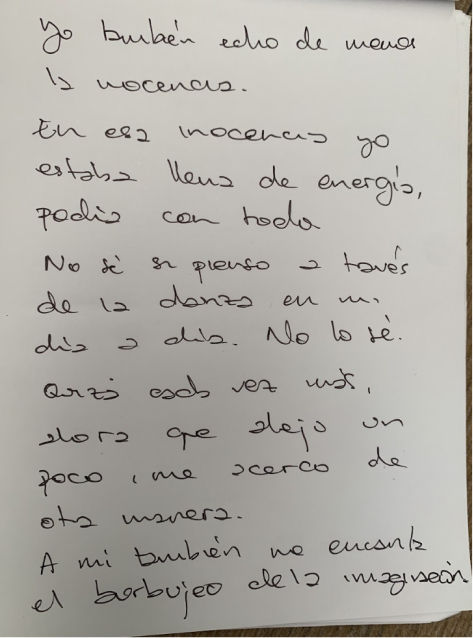 Yo también echo de menos
la inocencia.
En esa inocencia yo
estaba llena de energía,
podía con todo
No sé si pienso a través
de la danza en mi
día a día. No lo sé.
Quizá cada vez más,
ahora que alejo un
poco, me acerco de
otra manera.
A mi también me encanta
el borbujeo de la imaginación